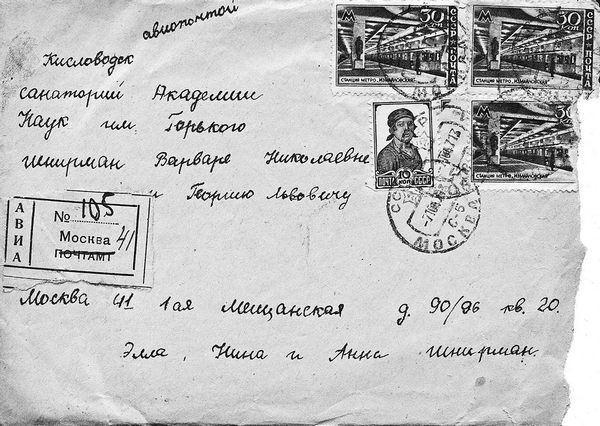 авиапочтой
Кисловодск
санаторий Академии
Наук им. Горького
Шнирман Варваре Николаевне
и Георгию Львовичу
АВИА
№ 105
Москва 41
ПОЧТАМТ
Москва 41 1ая Мещанская д. 90/96 кв. 20.
Элла, Нина и Анна Шнирман.
30 коп
СССР ПОЧТА
СТАНЦИЯ МЕТРО „ИЗМАЙЛОВСКАЯ"
30 коп
СССР ПОЧТА
СТАНЦИЯ МЕТРО „ИЗМАЙЛОВСКАЯ"
СТАНЦИЯ МЕТРО „ИЗМАЙЛОВСКАЯ"
ПОЧТА 10 КОП
МОСКВА